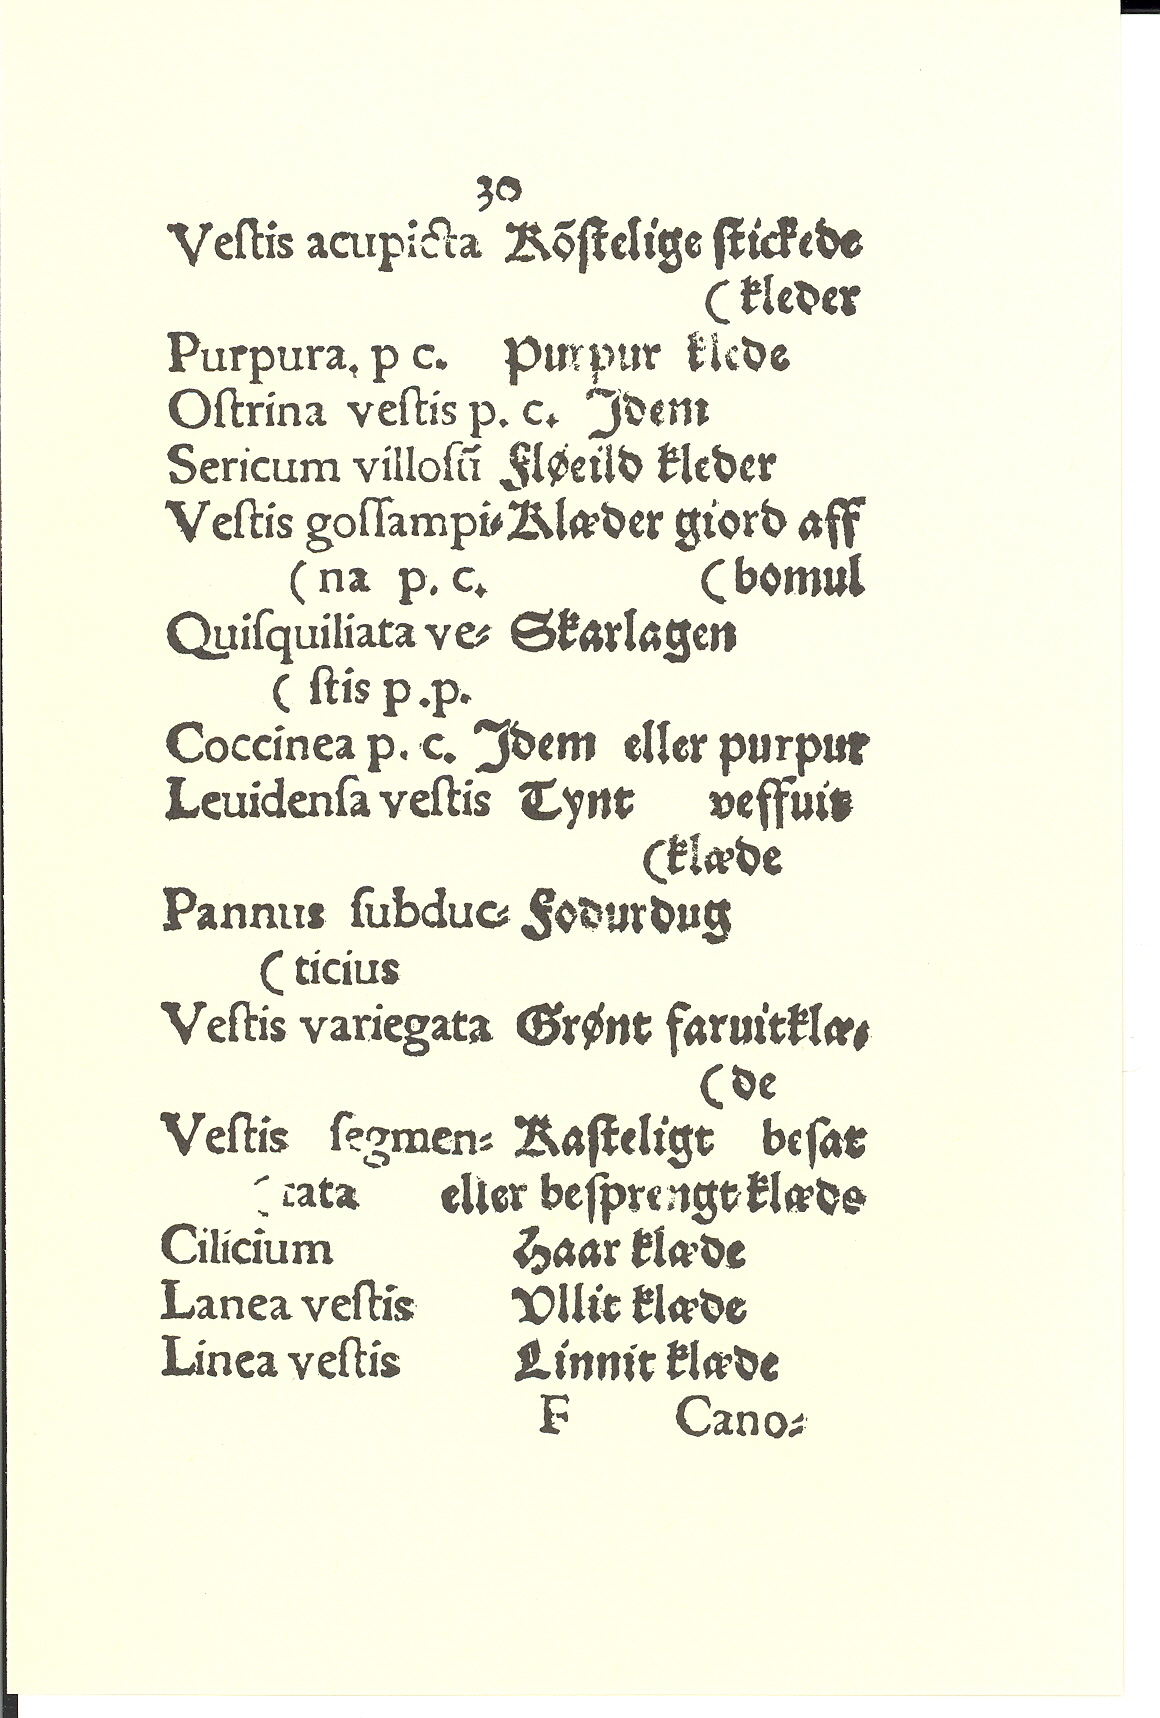 30
Veſtis acupicta Kõſtelige ſtickede
( kleder
Purpura, p c. Purpur klede
Oſtrina veſtis p. c. Idem
Sericum villoſū Fløeild kleder
Veſtis goſſampi⸗ Klæder giord aff
( na p. c. ( bomul
Quiſquiliata ve⸗ Skarlagen
( ſtis p .p.
Coccinea p. c. Idem eller purpur
Leuidenſa veſtis Tynt veffuit
(klæde
Pannus ſubduc⸗ Fodurdug
( ticius
Veſtis variegata Grønt faruitklæ⸗
( de
Veſtis ſegmen⸗ Kaſteligt beſat
( tata eller beſprengt klæde
Cilicium Haar klæde
Lanea veſtis Vllit klæde
Linea veſtis Linnit klæde
F Cano⸗